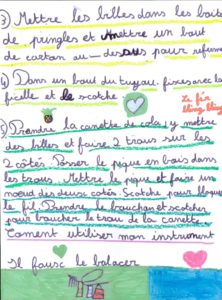 3) Mettre les billes dans les boîte
de pringles et mettre un bout
de carton au-dessus pour refermer
4) Dans un bout du tuyau, fixes avec la
ficelle et le scotche
5) Prendre la canette de coka, y mettre
des billes et faire 2 trous sur les
2 côtés. Passer le pique en bois dans
les trous. Mettre le pique et faire un
nœud des deux cotés. Scotche pour bloque
le fil. Prendre le bouchon et scotcher
pour boucher le trou de la canette.
Coment utiliser mon instrument
Il fausc le balacer